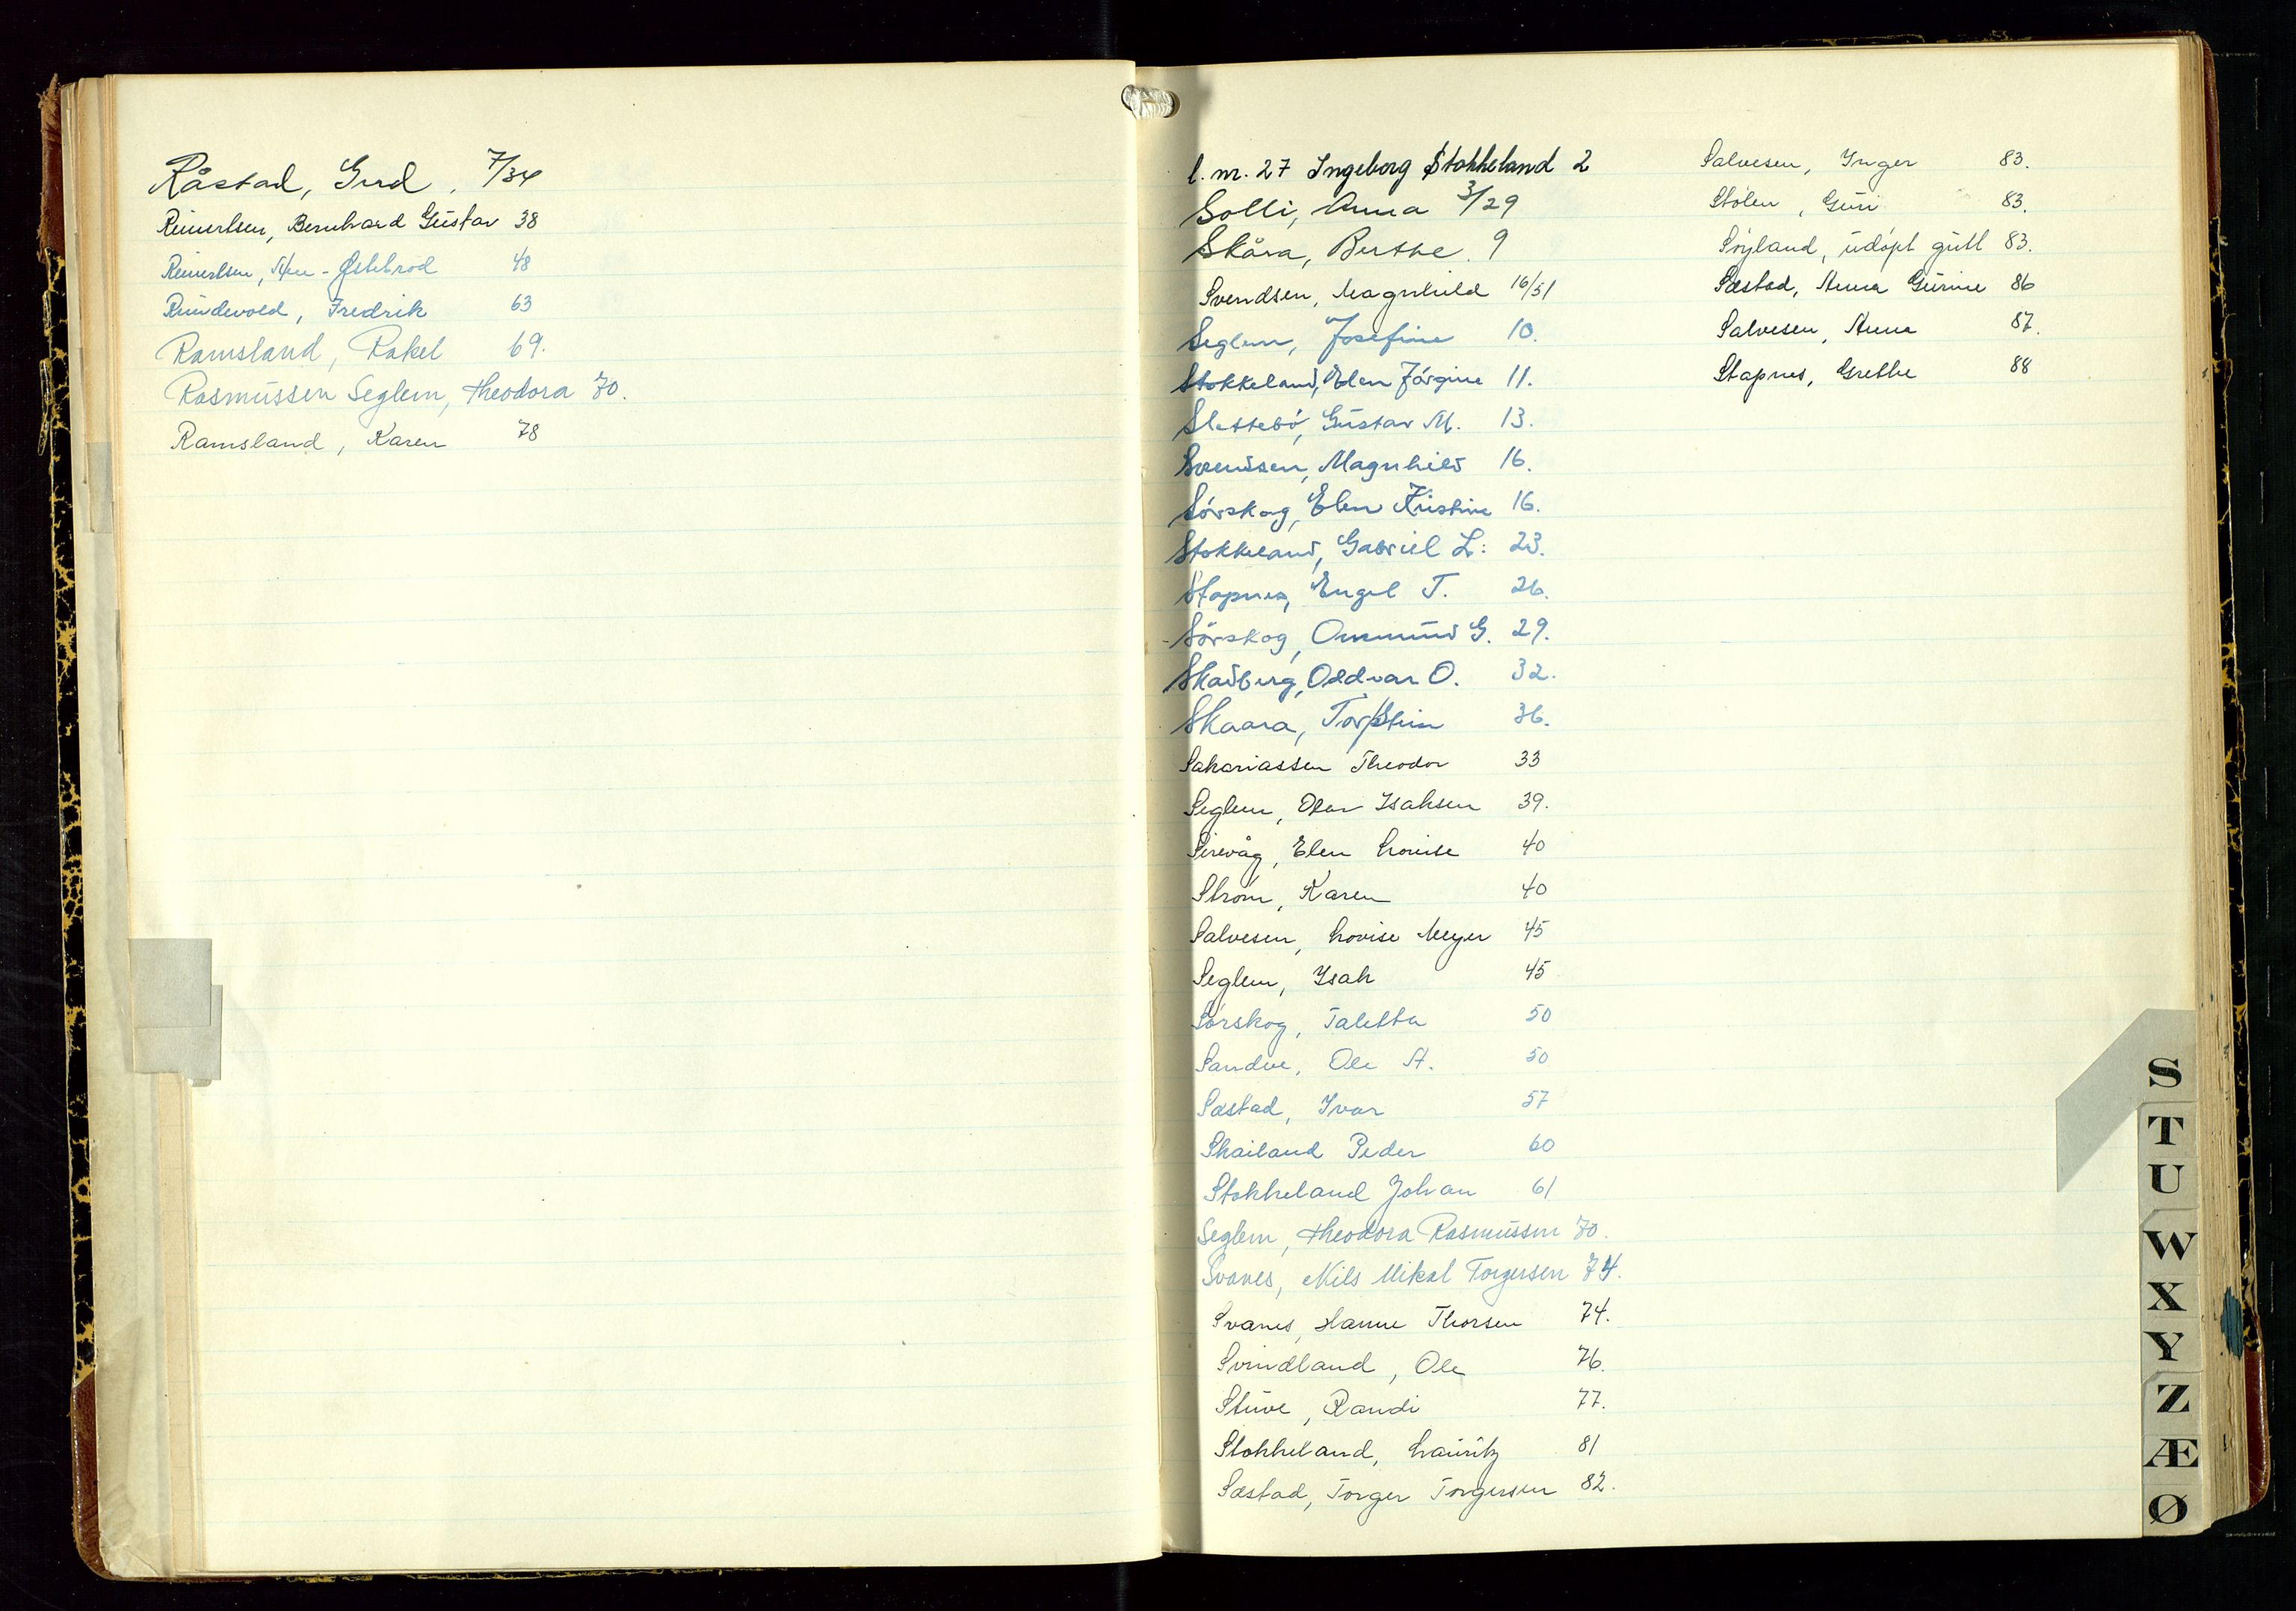 Råstad, Gurd, 7/34
Reinertsen, Bernhard Gustav 38
Reinertsen, - Østebrød 48
Rundevold, Fredrik 63
Ramsland, Rakel 69.
Rasmussen Seglem, Theodora 70.
Ramsland, Karen 78
l. nr. 27 Ingeborg Stokkeland 2
Solli, Anna 3/29
Skåra, Berthe. 9
Svendsen, Magnhild 16/51
Seglem, Josefine 10.
Stokkeland, Elen Jórgine 11.
Slettebó, Gustav M. 13.
Svendsen, Magnhild 16.
Sórskog, Elen Kristine 16.
Stokkeland, Gabriel L: 23.
Stapnes, Engel T. 26.
Sórskog, Ommund G. 29.
Skadberg, Oddvar O. 32.
Skaara, Torstein 36.
Sakariassen Theodor 33
Seglem, Olav Isaksen 39.
Sirevåg, Elen Lovise 40
Strøm, Karen 40
Salvesen, Lovise Meyer 45
Seglem, Isak 45
Sørskog, Taletta 50
Sandve, Ole A. 50
Sæstad, Ivar 57
Skailand Peder 60
Stokkeland Johan 61
Seglem, Theodora Rasmussen 70.
Svanes, Nils Mikal Torgersen 74.
Svanes, Hanne Thorsen 74.
Svindland, Ole 76.
Stuve, Randi 77.
Stokkeland, Lauritz 81
Sæstad, Torger Torgersen 82.
Salvesen, Inger 83.
Stølen, Guri 83.
Søyland, udøpt gutt 83.
Sæstad, Anna Gurine 86
Salvesen, Anna 87.
Stapnes, Grethe 88
S
T
U
W
X
Y
Z
Æ
Ø